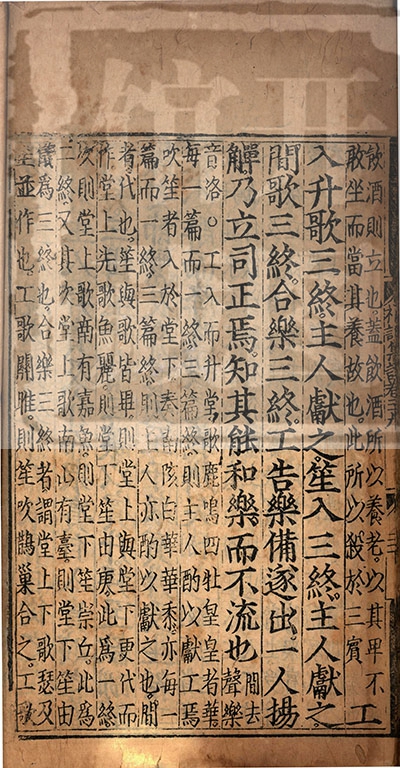 飲酒則立也。蓋飲酒所以養老。以其卑不
敢坐而當其養故也。此所以殺於三賓
工
入升歌三終主人獻之。笙入三終。主人獻之。
間歌三終。合樂三終。工告樂備遂出。一人揚
觶乃立司正焉。知其能和樂而不流也
間去
聲樂
音洛。○工入而升堂歌鹿鳴四牡皇皇者華。
每一篇而一終三篇終則主人酌以獻工焉
吹笙者入於堂下奏南陔白華華黍。亦每一
篇而一終三篇終則主人亦酌以獻之也。間
者代也。笙與歌皆畢則堂上與堂下更代而
作堂上先歌魚麗則堂下笙由庚此為一終
次則堂上歌南有嘉魚則堂下笙崇丘。此為
二終又其次堂上歌南山有臺則堂下笙由
儀為三終也。合樂三終者謂堂上下歌瑟及
笙並作也。工歌關雎。則笙吹鵲巢合之。工歌